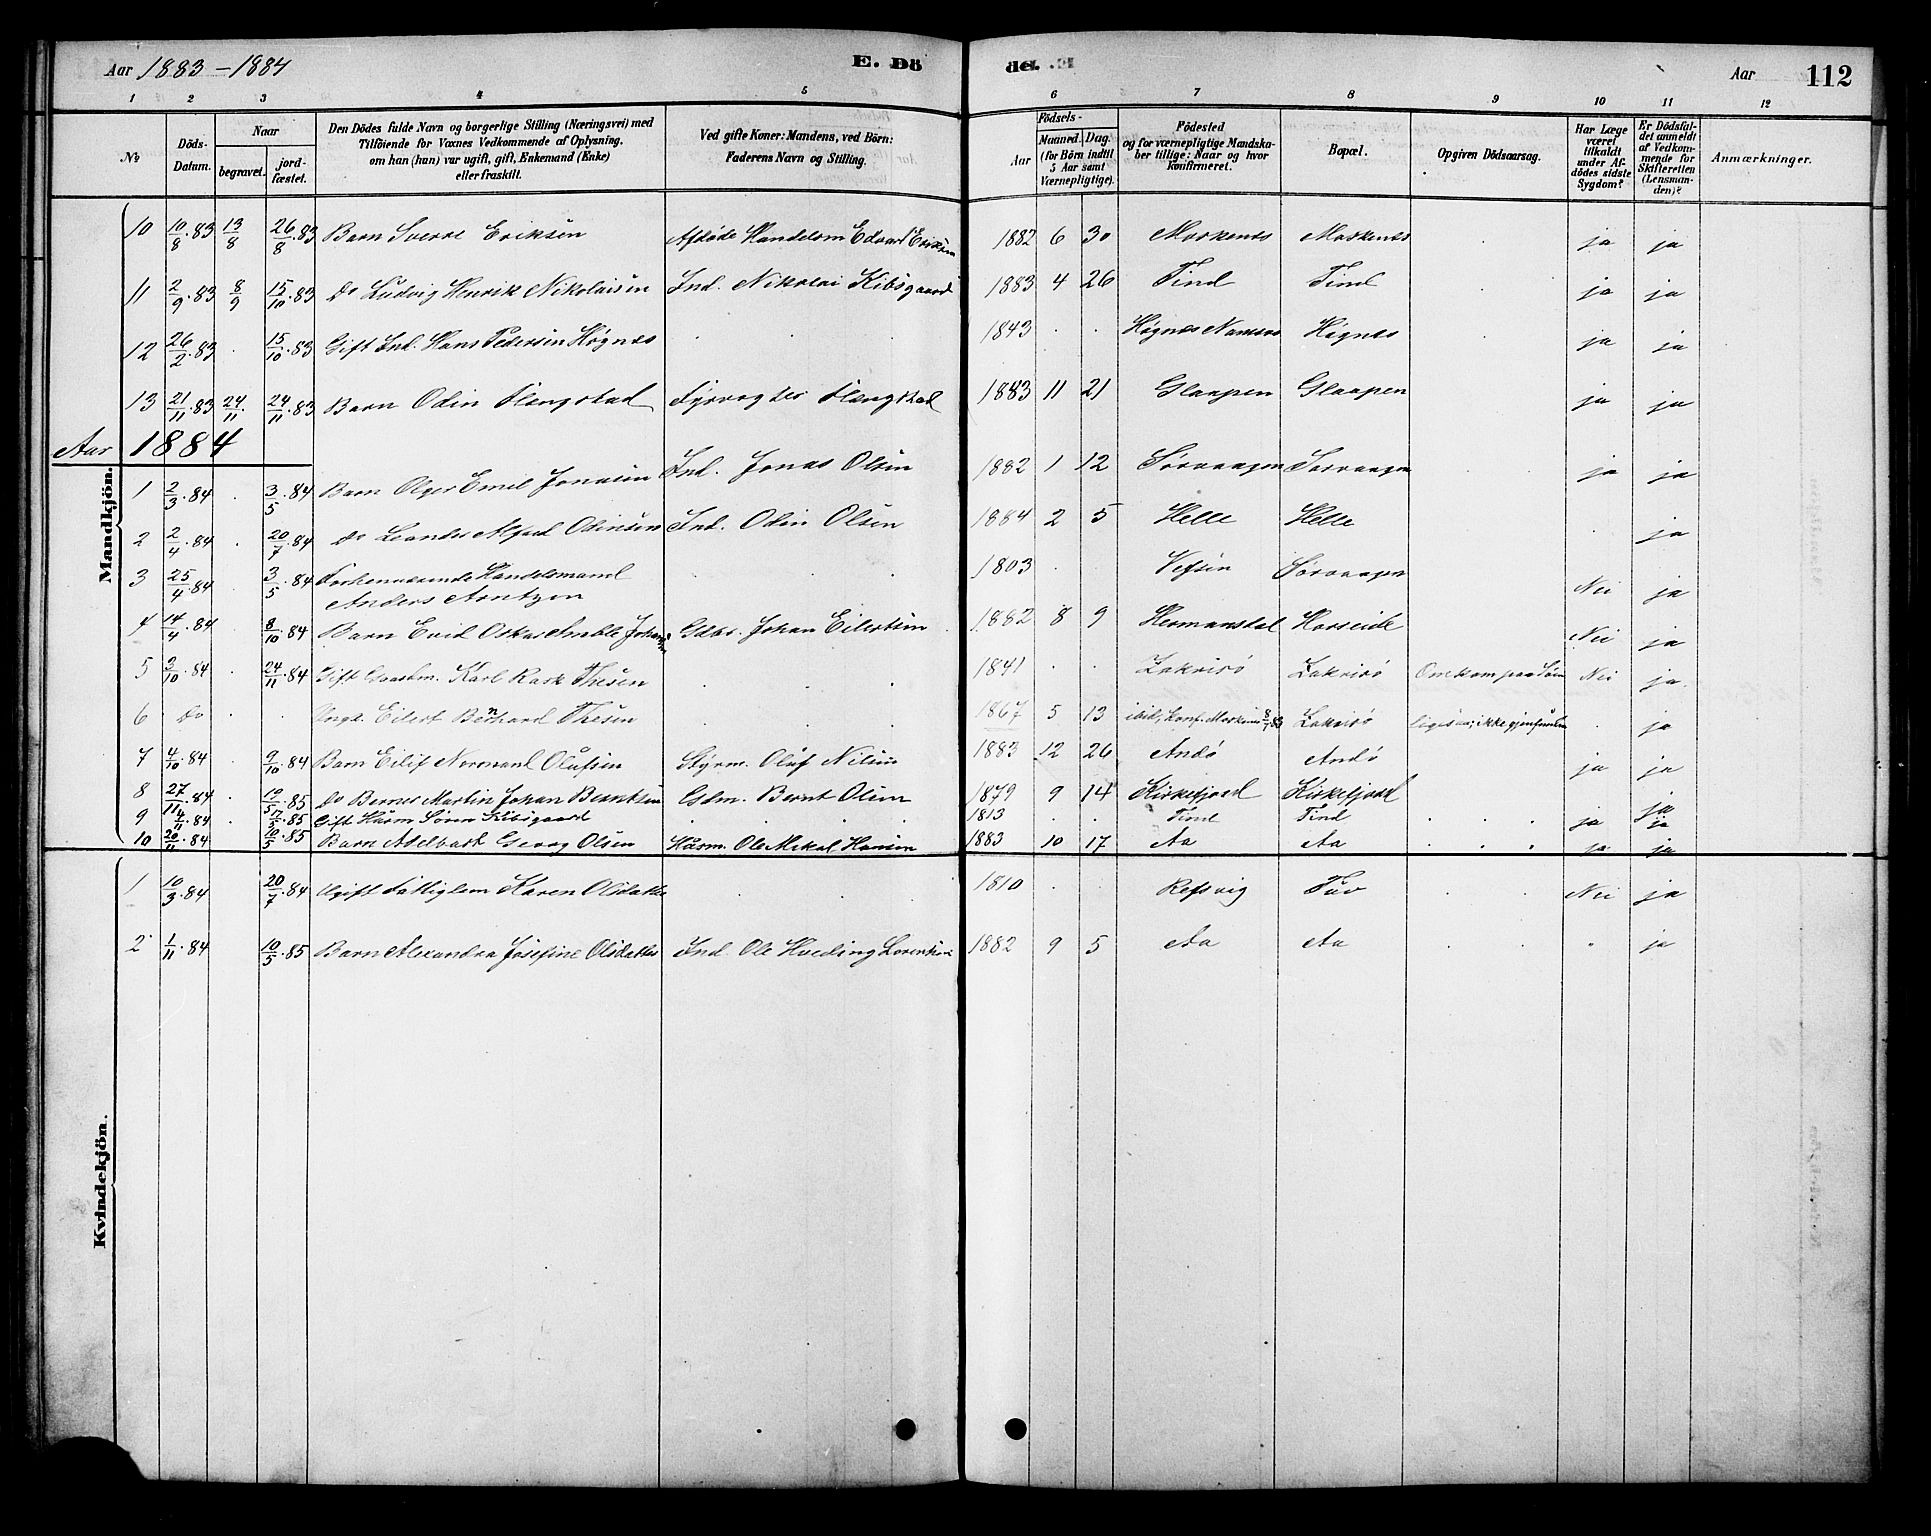 Aar 1883-1884
E. Dö
de.
Aar
112
1 2 3 4 5 6 7 8 9 10 11 12
№
Döds-Datum.
Naar
begravet.
jord-fæstet.
Den Dödes fulde Navn og borgerlige Stilling (Næringsvei) med
Tilföiende for Voxnes Vedkommende af Oplysning,
om han (hun) var ugift, gift, Enkemand (Enke)
eller fraskilt.
Ved gifte Koner: Mandens, ved Börn:
Faderens Navn og Stilling.
Födsels-
Aar
Maaned. Dag.
(for Börn indtil
5 Aar samt
Værnepligtige).
Födested
og for værnepligtige Mandska-
ber tillige: Naar og hvor
konfirmeret.
Bopæl.
Opgiven Dödsaarsag.
Har Læge
været
tilkaldt
under Af-
dödes sidste
Sygdom?
Er Dödsfal-
det anmeldt
af Vedkom-
mende for
Skifteretten
(Lensman-
den)?
Anmærkninger.
Mandkjön.
10 10/8.83 13/8 26/8.83 Barn Sverre Eriksen Afdöde Handelsm Edvard Eriksen 1882 6 30 Moskenes Moskenes ja ja
11 2/9.83 8/9 15/10.83 Do Ludvig Henrik Nikolaisen Ind. Nikolai Kibsgaard 1883 4 26 Tind Tind ja ja
12 26/2.83 15/10.83 Gift Ind. Hans Pedersen Högnes 1843 Högnes Högnes ja ja
13 21/11.83 24/11. 24/11.83 Barn Odin Flengstad Fyrvogter Flengstad 1883 11 21 Glaapen Glaapen ja ja
Aar 1884
1 2/3.84 3/5.84 Barn Olger Emil Jonasen Ind. Jonas Olsen 1882 1 12 Sörvaagen Sörvaagen ja ja
2 2/4.84 20/7.84 do Leander Alfred Odinsen Ind. Odin Olsen 1884 2 5 Helle Helle ja
3 25/4.84 3/5.84 Forhenværende Handelsmand
Anders Arntzen 1803 Vefsen Sörvaagen Nei ja
4 14/4.84 8/10.84 Barn Oskar Johan Eilertsen 1882 8 9 Hermansdal Horseide Nei ja
5 3/10.84 24/11.84 Gift Gaardm. Karl Rask Thesen 1841 Zakrisö Zakrisö Omkom paa Söen Nei ja
6 do Ungk. Eilert Bernhard Thesen 1867 5 13 ibid, Konf. Moskenes Zakrisö ligesaa; ikke gjenfunden ja
7 4/10.84 9/10.84 Barn Eilif Normand Olufsen Styrm. Oluf Nilsen 1883 12 26 Andö Andö ja ja
8 27/11.84 19/5.85 do Berner Martin Johan Berntsen Gdm. Bernt Olsen 1879 9 14 Kirkefjord Kirkefjord ja
9 4/11.84 17/5.85 Gift Husm Sören Kibsgaard 1813 Tind Tind ja ja
10 20/11.84 10/5.85 Barn Adelbart Georg Olsen Husm. Ole Mikal Hansen 1883 10 17 Aa Aa ja ja
Kvindekjön.
1 10/3.84 20/7.84 Ugift Fattiglem Karen Olsdatter 1810 Refsvig Tuv Nei ja
2 1/11.84 10/5.85 Barn Alexandra Josefine Olsdatter Ind. Ole Hveding Lorentsen 1882 9 5 Aa Aa " ja